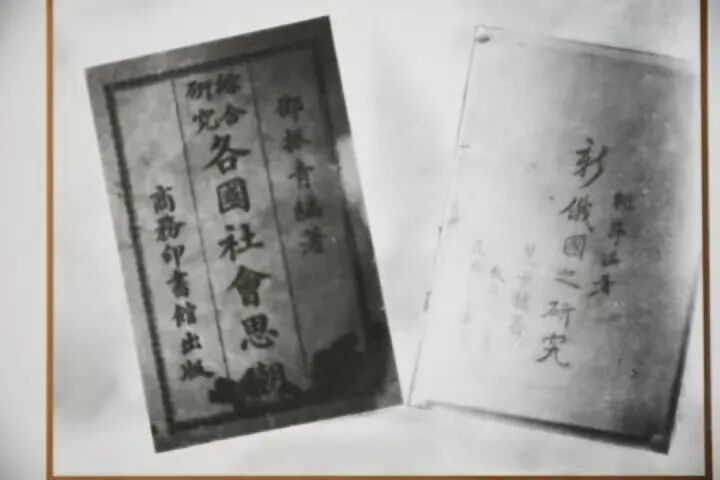 鄧振青編著
綜合研究
各國社會思潮
商務印書館出版
新俄國之研究
著